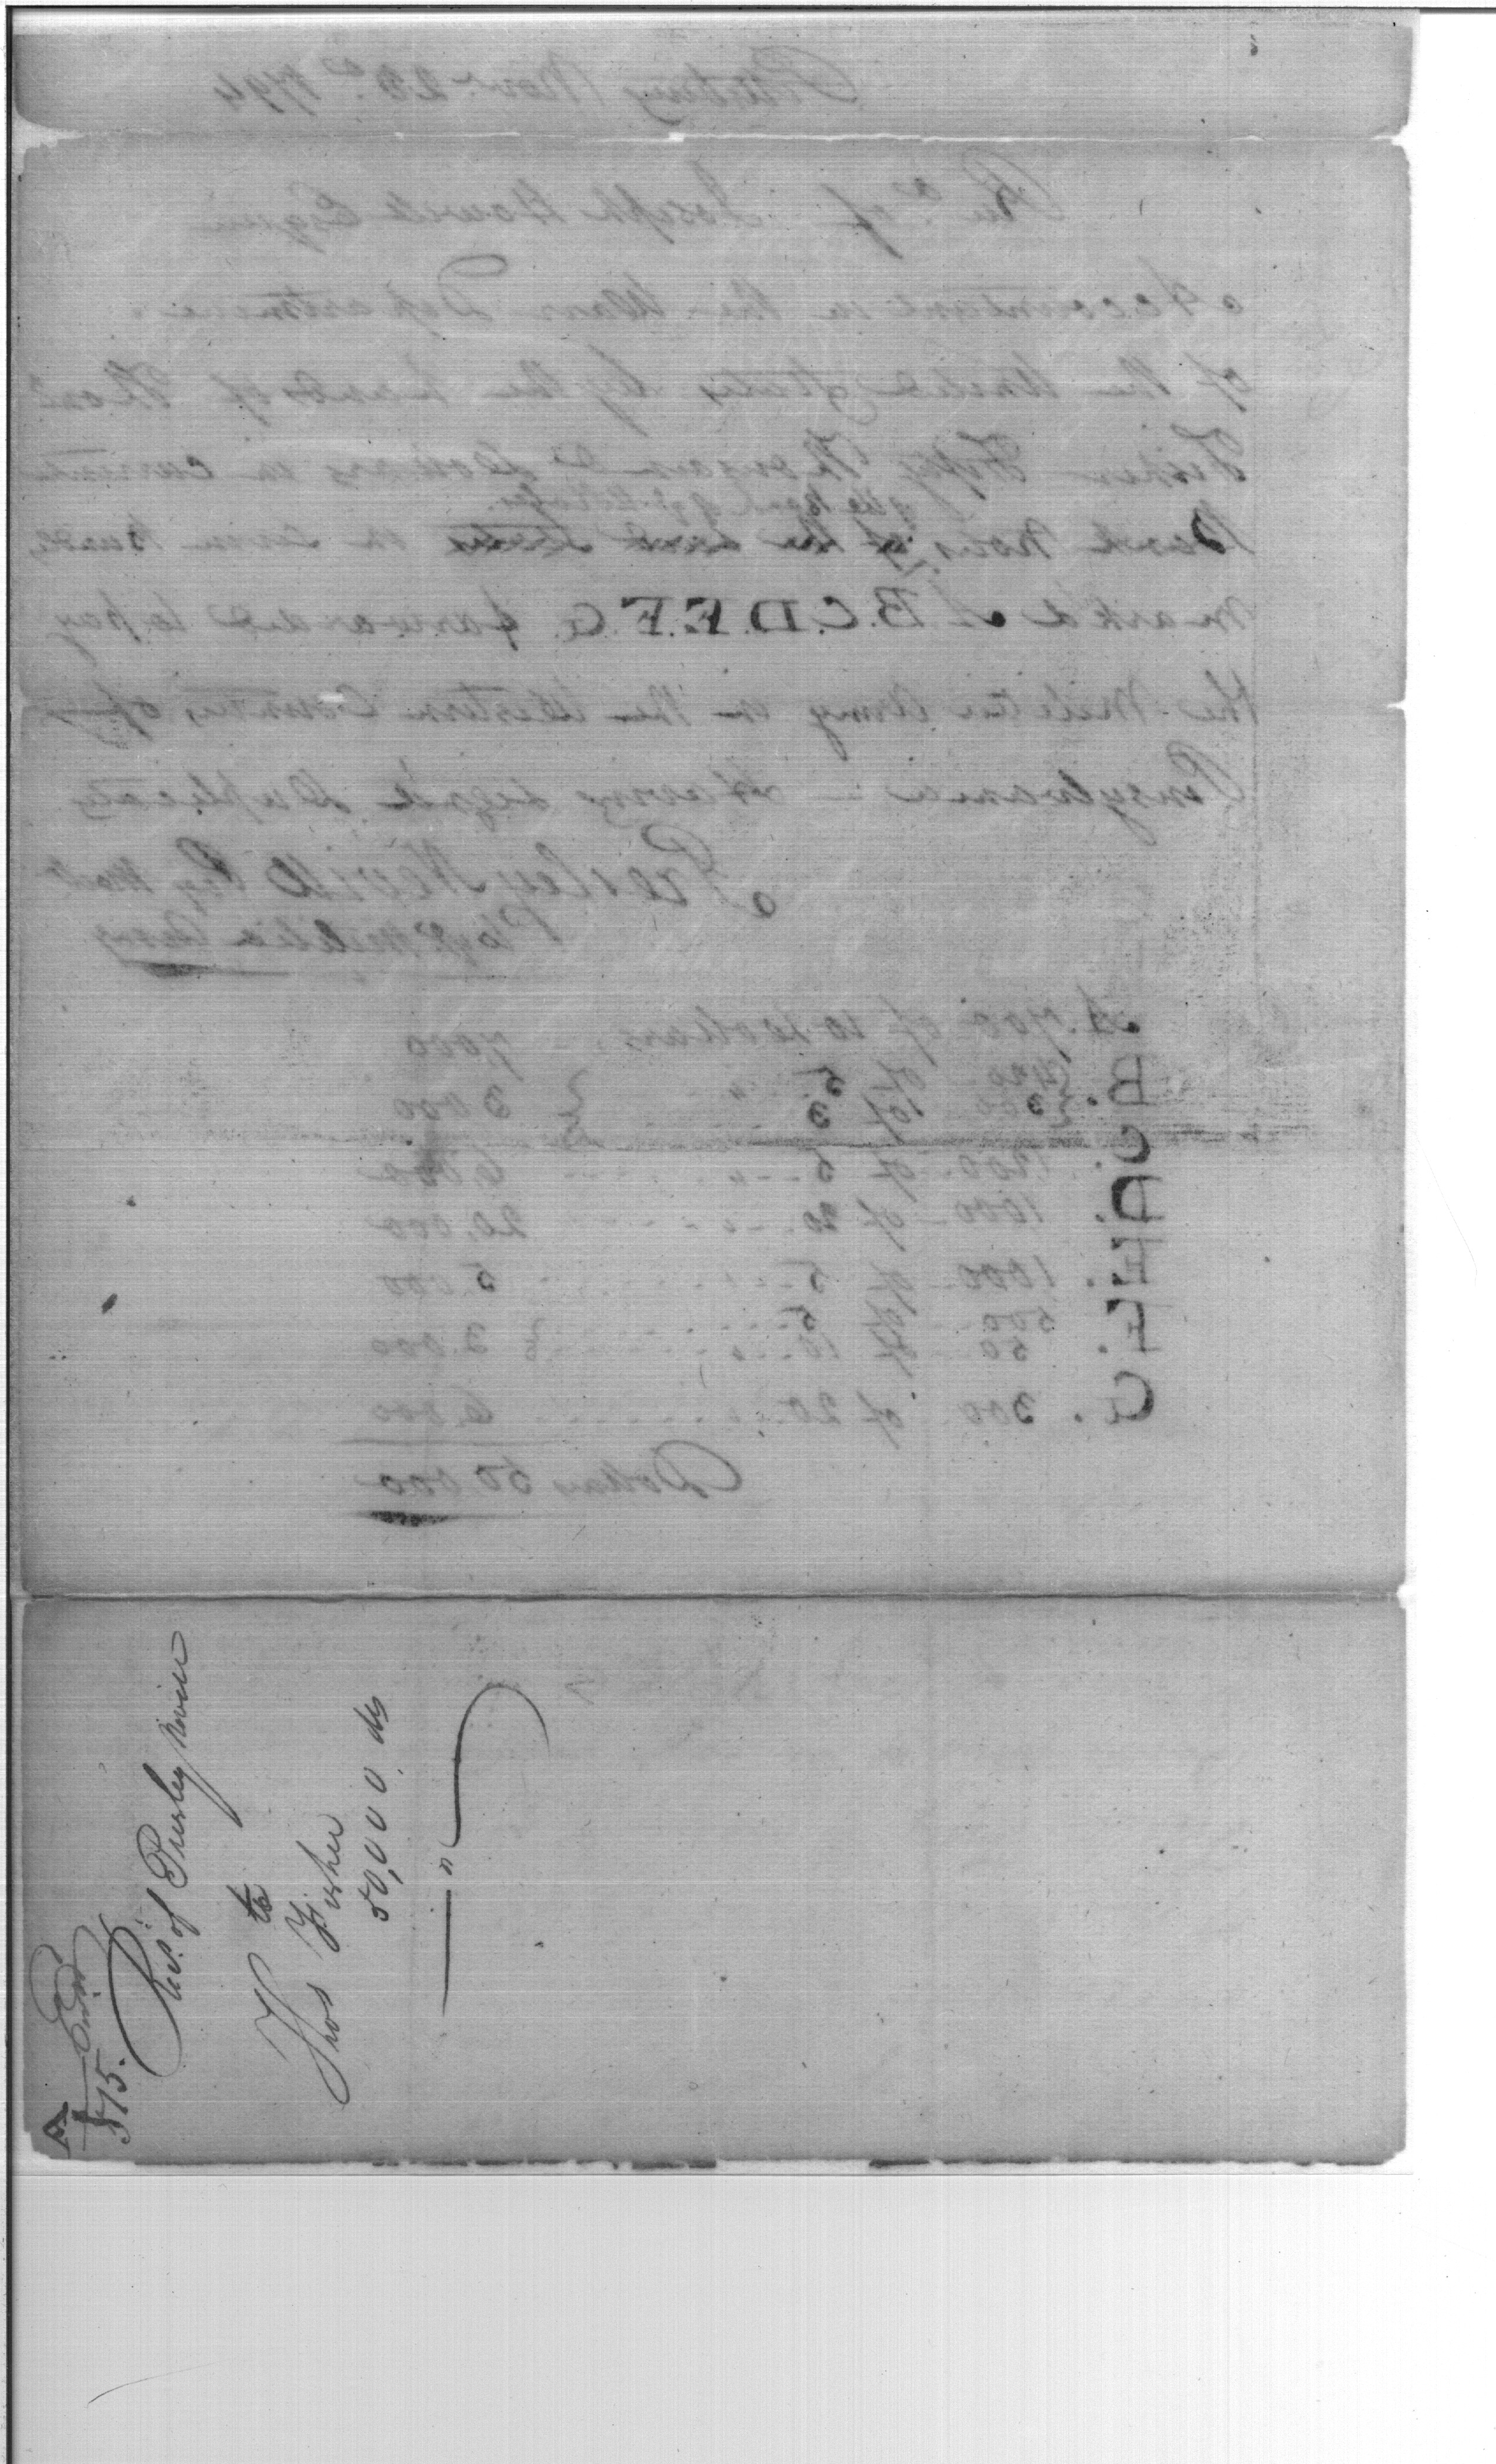 Pittsburg Nov. 23d. 1794
Recd. of Joseph Howell Esquire
Accountant in the Warr Department
of the United States by the hands of Thos
Fisher Fifty Thousand Dollars in current
of the Bank of ye U States
Bank Notes of the in seven Bundles
mark'd A B.C.D.E.F.G. forwarded to pay
the Militia Army in the Western Countys of
Pensylvania Having signd Duplicates
Presley Nevill
Militia Army
A. 700 of 10 Dollars 7000
B. 420 of 5
300 of 3 3000
C. 1200 of 5 6,000
D. 1000 of 20 20,000
E. 1000 of 5 5.000
F. 500 of 5
50 of 10 3.000
G. 300 of 20 6.000
Dollars 50.000
A
875.
Rect. of Presley Nevill
to
Thos Fisher
50,000 ds